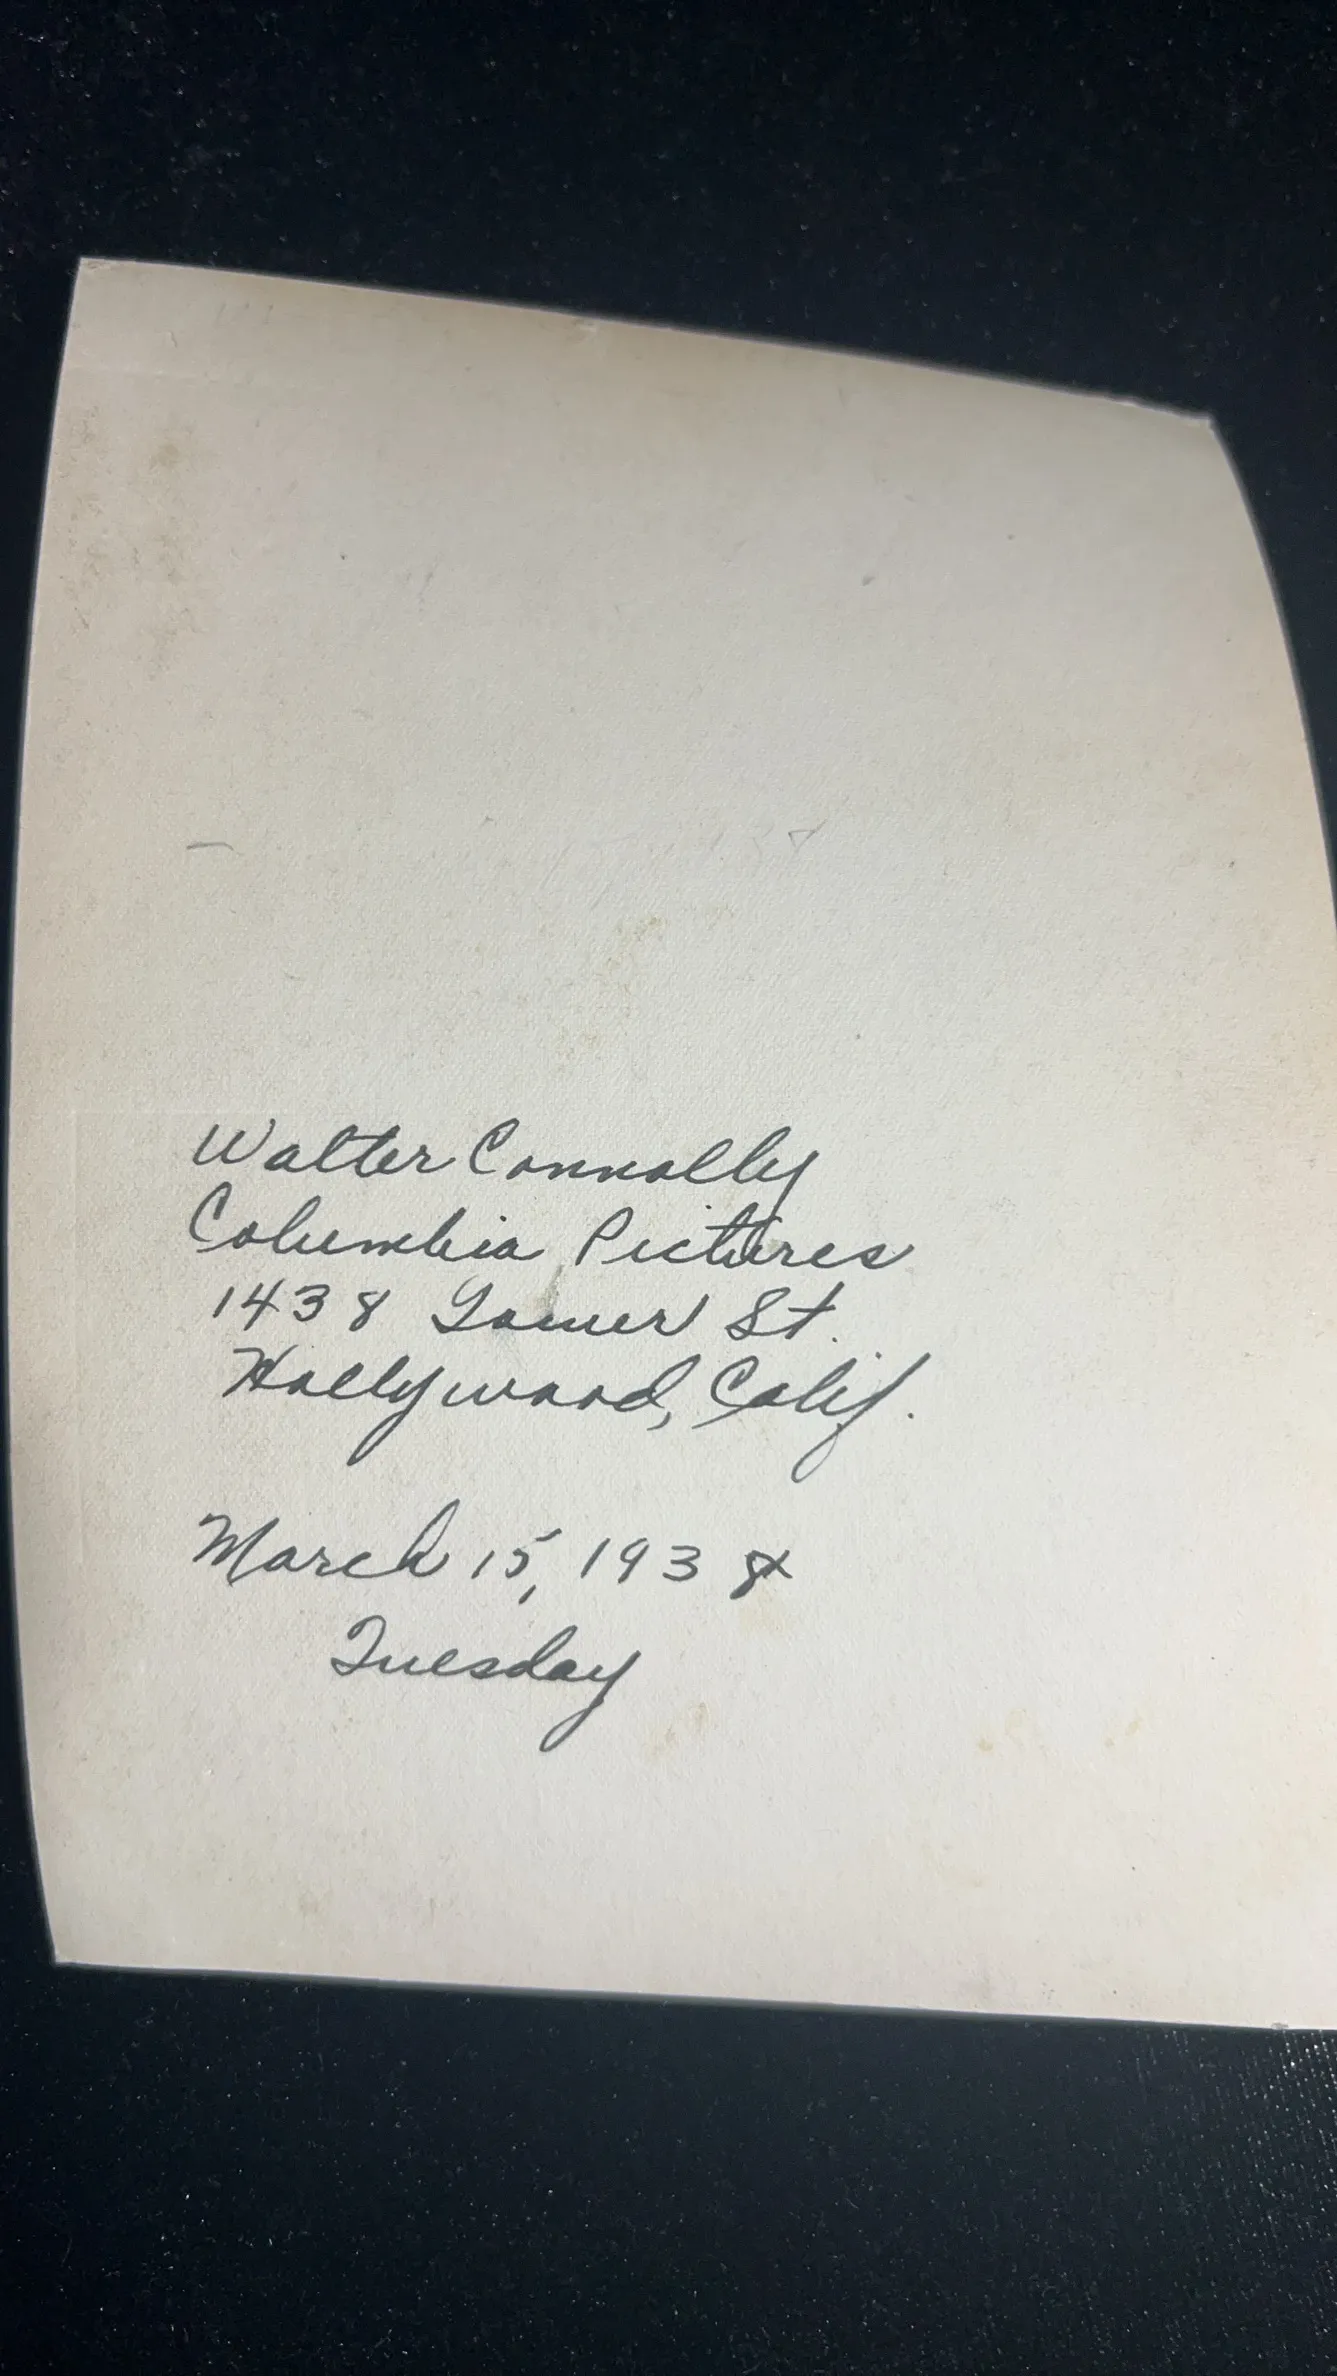 Walter Connolly
Columbia Pictures
1438 Gower St.
Hollywood, Calif.
March 15, 1938
Tuesday